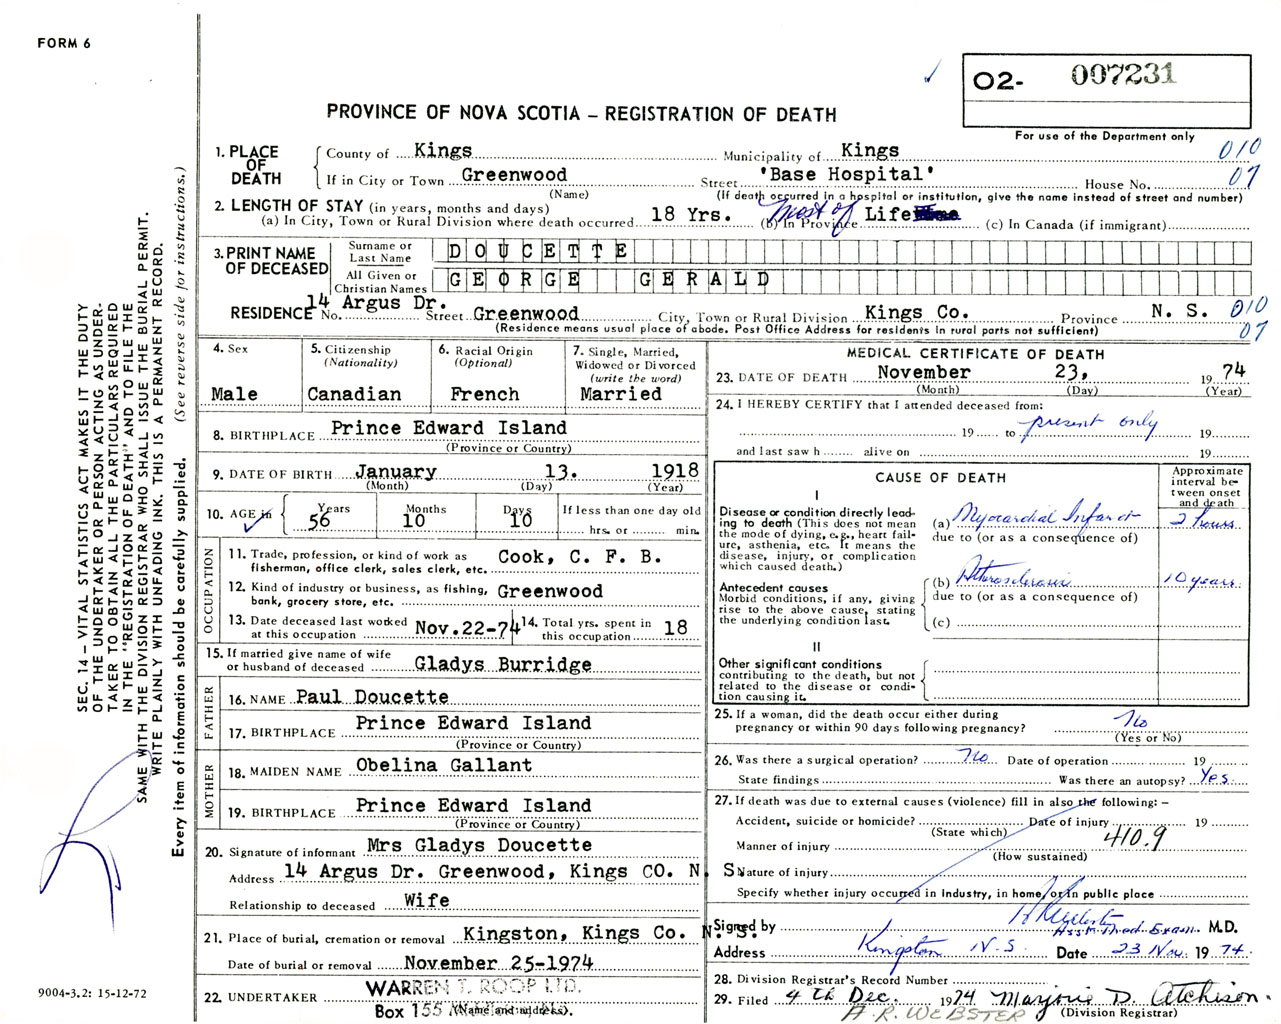 FORM 6
O2- 007231
For use of the Department only
PROVINCE OF NOVA SCOTIA – REGISTRATION OF DEATH
1. PLACE OF DEATH
County of Kings Municipality of Kings 010
If in City or Town Greenwood Street 'Base Hospital' House No. 07
(Name) (If death occurred in a hospital or institution, give the name instead of street and number)
2. LENGTH OF STAY (in years, months and days)
(a) In City, Town or Rural Division where death occurred 18 Yrs. (b) In Province Most of Life (c) In Canada (if immigrant)
3. PRINT NAME OF DECEASED
Surname or Last Name DOUCETTE
All Given or Christian Names GEORGE GERALD
RESIDENCE No. 14 Argus Dr. Street Greenwood City, Town or Rural Division Kings Co. Province N. S. 010
(Residence means usual place of abode. Post Office Address for residents in rural parts not sufficient) 07
4. Sex
Male
5. Citizenship
(Nationality)
Canadian
6. Racial Origin
(Optional)
French
7. Single, Married,
Widowed or Divorced
(write the word)
Married
8. BIRTHPLACE Prince Edward Island
(Province or Country)
9. DATE OF BIRTH January 13. 1918
(Month) (Day) (Year)
10. AGE in Years 56 Months 10 Days 10 If less than one day old
hrs. or min.
OCCUPATION
11. Trade, profession, or kind of work as
fisherman, office clerk, sales clerk, etc. Cook, C. F. B.
12. Kind of industry or business, as fishing,
bank, grocery store, etc. Greenwood
13. Date deceased last worked
at this occupation Nov.22-74
14. Total yrs. spent in
this occupation 18
15. If married give name of wife
or husband of deceased Gladys Burridge
FATHER
16. NAME Paul Doucette
17. BIRTHPLACE Prince Edward Island
(Province or Country)
MOTHER
18. MAIDEN NAME Obelina Gallant
19. BIRTHPLACE Prince Edward Island
(Province or Country)
20. Signature of informant Mrs Gladys Doucette
Address 14 Argus Dr. Greenwood, Kings CO. N. S.
Relationship to deceased Wife
21. Place of burial, cremation or removal Kingston, Kings Co. N. S.
Date of burial or removal November 25-1974
22. UNDERTAKER WARREN T. ROOP LTD.
Box 155
(Name and address).
MEDICAL CERTIFICATE OF DEATH
23. DATE OF DEATH November 23, 1974
(Month) (Day) (Year)
24. I HEREBY CERTIFY that I attended deceased from:
19 to present only 19
and last saw h alive on 19
CAUSE OF DEATH
Approximate interval between onset and death
I
Disease or condition directly leading to death (This does not mean
the mode of dying, e.g., heart failure, asthenia, etc. It means the
disease, injury, or complication
which caused death.)
(a) Myocardial Infarct 2 hours
due to (or as a consequence of)
Antecedent causes
Morbid conditions, if any, giving
rise to the above cause, stating
the underlying condition last.
(b) Atherosclerosis 10 years
due to (or as a consequence of)
(c)
II
Other significant conditions
contributing to the death, but not
related to the disease or condition causing it.
25. If a woman, did the death occur either during
pregnancy or within 90 days following pregnancy? No
(Yes or No)
26. Was there a surgical operation? No Date of operation 19
State findings Was there an autopsy? Yes
27. If death was due to external causes (violence) fill in also the following: –
Accident, suicide or homicide? Date of injury 19
(State which)
Manner of injury 410.9
(How sustained)
Nature of injury
Specify whether injury occurred in industry, in home, or in public place
Signed by M.D.
Asst. Med. Exam.
Address Kingston N.S. Date 23 Nov. 1974
28. Division Registrar's Record Number
29. Filed 4th Dec. 1974 Marjorie D. Atchison.
A.R. WEBSTER (Division Registrar)
SEC. 14 – VITAL STATISTICS ACT MAKES IT THE DUTY
OF THE UNDERTAKER OR PERSON ACTING AS UNDER-
TAKER TO OBTAIN ALL THE PARTICULARS REQUIRED
IN THE "REGISTRATION OF DEATH" AND TO FILE THE
SAME WITH THE DIVISION REGISTRAR WHO SHALL ISSUE THE BURIAL PERMIT.
WRITE PLAINLY WITH UNFADING INK. THIS IS A PERMANENT RECORD.
Every item of information should be carefully supplied. (See reverse side for instructions.)
9004-3.2: 15-12-72